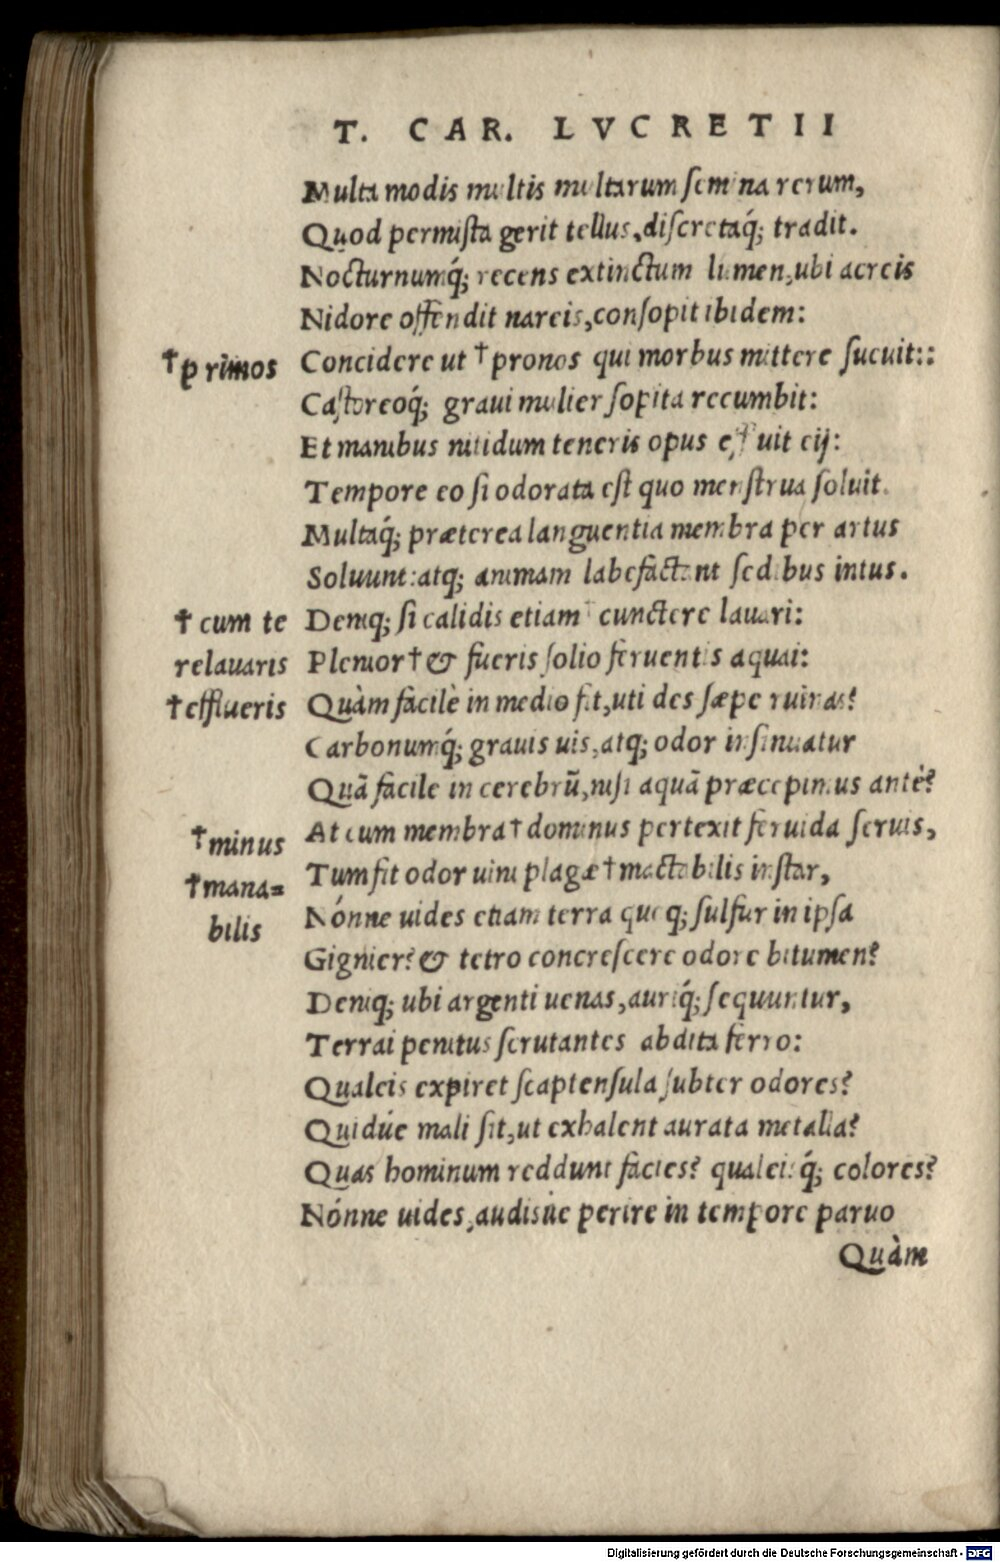 T. CAR. LVCRETII
Multa modis multis multarum semina rerum,
Quod permista gerit tellus, discretaq́; tradit.
Nocturnumq́; recens extinctum lumen, ubi acreis
Nidore offendit nareis, consopit ibidem:
†primos
Concidere ut †pronos qui morbus mittere sueuit::
Castoreoq́; graui mulier sopita recumbit:
Et manibus nitidum teneris opus effluit eij:
Tempore eo si odorata est quo menstrua soluit.
Multaq́; præterea languentia membra per artus
Soluunt: atq; animam labefactant sedibus intus.
† cum te
Deniq; si calidis etiam † cunctere lauari:
relauaris
Plenior † & fueris solio feruentis aquai:
†efflueris
Quàm facilè in medio fit, uti des sæpe ruinas?
Carbonumq́; grauis uis, atq; odor insinuatur
Quã facile in cerebrũ, nisi aquã præcepimus antè?
At cum membra † dominus pertexit feruida seruis,
†minus
Tum fit odor uini plagæ † mactabilis instar,
†mana=
Nónne uides etiam terra queq; sulfur in ipsa
bilis
Gignier? & tetro concrescere odore bitumen?
Deniq; ubi argenti uenas, auriq́; sequuntur,
Terrai penitus scrutantes abdita ferro:
Qualeis expiret scaptensula subter odores?
Quidúe mali fit, ut exhalent aurata metalla?
Quas hominum reddunt facies? qualeisq́; colores?
Nónne uides, audisúe perire in tempore paruo
Quàm
Digitalisierung gefördert durch die Deutsche Forschungsgemeinschaft - DFG